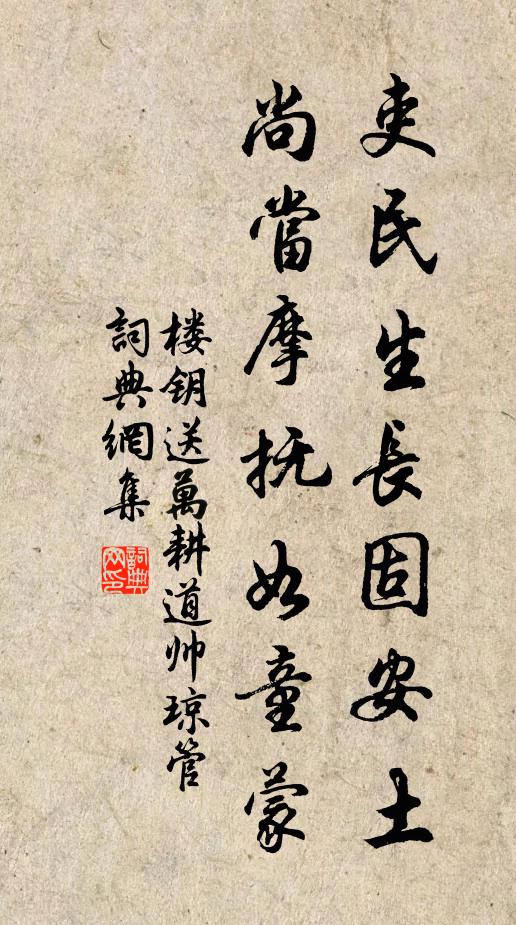 吏民生長固安土
尚當摩抚如童蒙
楼钥送萬耕道帅琼管
詞典網集
詞典網印